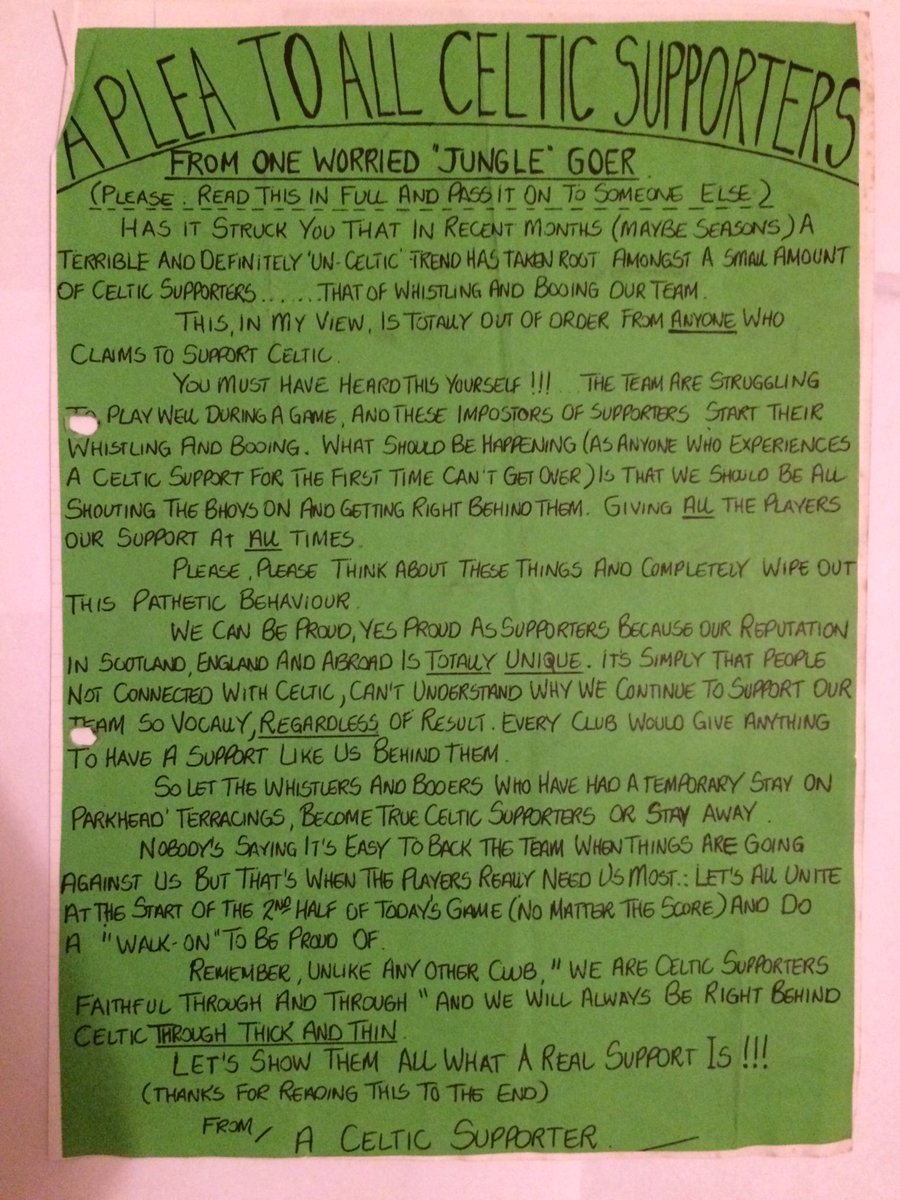 A PLEA TO ALL CELTIC SUPPORTERS
FROM ONE WORRIED "JUNGLE" GOER.
(PLEASE. READ THIS IN FULL AND PASS IT ON TO SOMEONE ELSE.)
HAS IT STRUCK YOU THAT IN RECENT MONTHS (MAYBE SEASONS,) A
TERRIBLE AND DEFINITELY 'UN-CELTIC' TREND HAS TAKEN ROOT AMONGST A SMALL AMOUNT
OF CELTIC SUPPORTERS.......THAT OF WHISTLING AND BOOING OUR TEAM.
THIS, IN MY VIEW, IS TOTALLY OUT OF ORDER FROM ANYONE WHO
CLAIMS TO SUPPORT CELTIC.
YOU MUST HAVE HEARD THIS YOURSELF!!! THE TEAM ARE STRUGGLING
TO, PLAY WELL DURING A GAME, AND THESE IMPOSTORS OF SUPPORTERS START THEIR
WHISTLING AND BOOING. WHAT SHOULD BE HAPPENING (AS ANYONE WHO EXPERIENCES
A CELTIC SUPPORT FOR THE FIRST TIME CAN'T GET OVER) IS THAT WE SHOULD BE ALL
SHOUTING THE BHOYS ON AND GETTING RIGHT BEHIND THEM. GIVING ALL THE PLAYERS
OUR SUPPORT AT ALL TIMES.
PLEASE, PLEASE THINK ABOUT THESE THINGS AND COMPLETELY WIPE OUT
THIS PATHETIC BEHAVIOUR.
WE CAN BE PROUD, YES PROUD AS SUPPORTERS BECAUSE OUR REPUTATION
IN SCOTLAND, ENGLAND AND ABROAD IS TOTALLY UNIQUE. IT'S SIMPLY THAT PEOPLE
NOT CONNECTED WITH CELTIC, CAN'T UNDERSTAND WHY WE CONTINUE TO SUPPORT OUR
TEAM SO VOCALLY, REGARDLESS OF RESULT. EVERY CLUB WOULD GIVE ANYTHING
TO HAVE A SUPPORT LIKE US BEHIND THEM.
SO LET THE WHISTLERS AND BOOERS WHO HAVE HAD A TEMPORARY STAY ON
PARKHEAD' TERRACINGS, BECOME TRUE CELTIC SUPPORTERS OR STAY AWAY.
NOBODY'S SAYING IT'S EASY TO BACK THE TEAM WHEN THINGS ARE GOING
AGAINST US BUT THAT'S WHEN THE PLAYERS REALLY NEED US MOST.: LET'S ALL UNITE
AT THE START OF THE 2ND HALF OF TODAY'S GAME (NO MATTER THE SCORE) AND DO
A "WALK-ON" TO BE PROUD OF.
REMEMBER, UNLIKE ANY OTHER CLUB, "WE ARE CELTIC SUPPORTERS
FAITHFUL THROUGH AND THROUGH" AND WE WILL ALWAYS BE RIGHT BEHIND
CELTIC THROUGH THICK AND THIN.
LET'S SHOW THEM ALL WHAT A REAL SUPPORT IS!!!
(THANKS FOR READING THIS TO THE END)
FROM/ A CELTIC SUPPORTER.